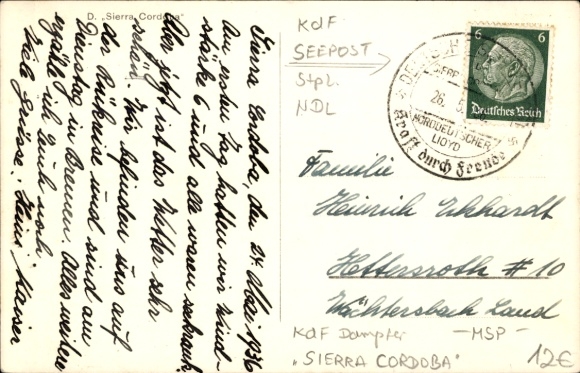 D. „Sierra Cordoba“
Sierra Cordoba, den 24. Mai 1936
Am ersten Tag hatten wir Wind-
stärke 6 und alle waren seekrank.
Aber jetzt ist das Wetter sehr
schön. Wir befinden uns auf
der Rückreise und sind am
Dienstag in Bremen. Alles weitere
erzähle ich Euch noch.
Viele Grüsse: Heini Kaiser
KdF
SEEPOST
Stpl.
NDL
6 6
Deutsches Reich
26. 5.
NORDDEUTSCHER
LLOYD
Kraft durch Freude
Familie
Heinrich Eckhardt
Hettersroth # 10
Wächtersbach Land
KdF Dampfer —MSP—
„SIERRA CORDOBA“ 12€